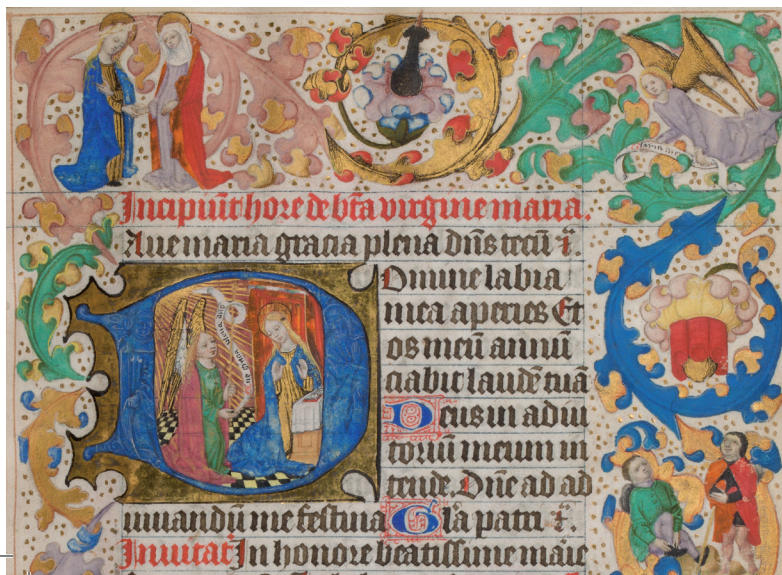 Incipiūt hore de bt̄a virgine maria.
Aue maria gracia plena dn̄s tecū i
Domine labia
mea aperies Et
os meū annū
ciabit laudē tuā
Deus in adiu
toriū meum in
tende. Dn̄e ad ad
iuuandū me festina Gl̄a patri
Inuitat In honore beatissime marie